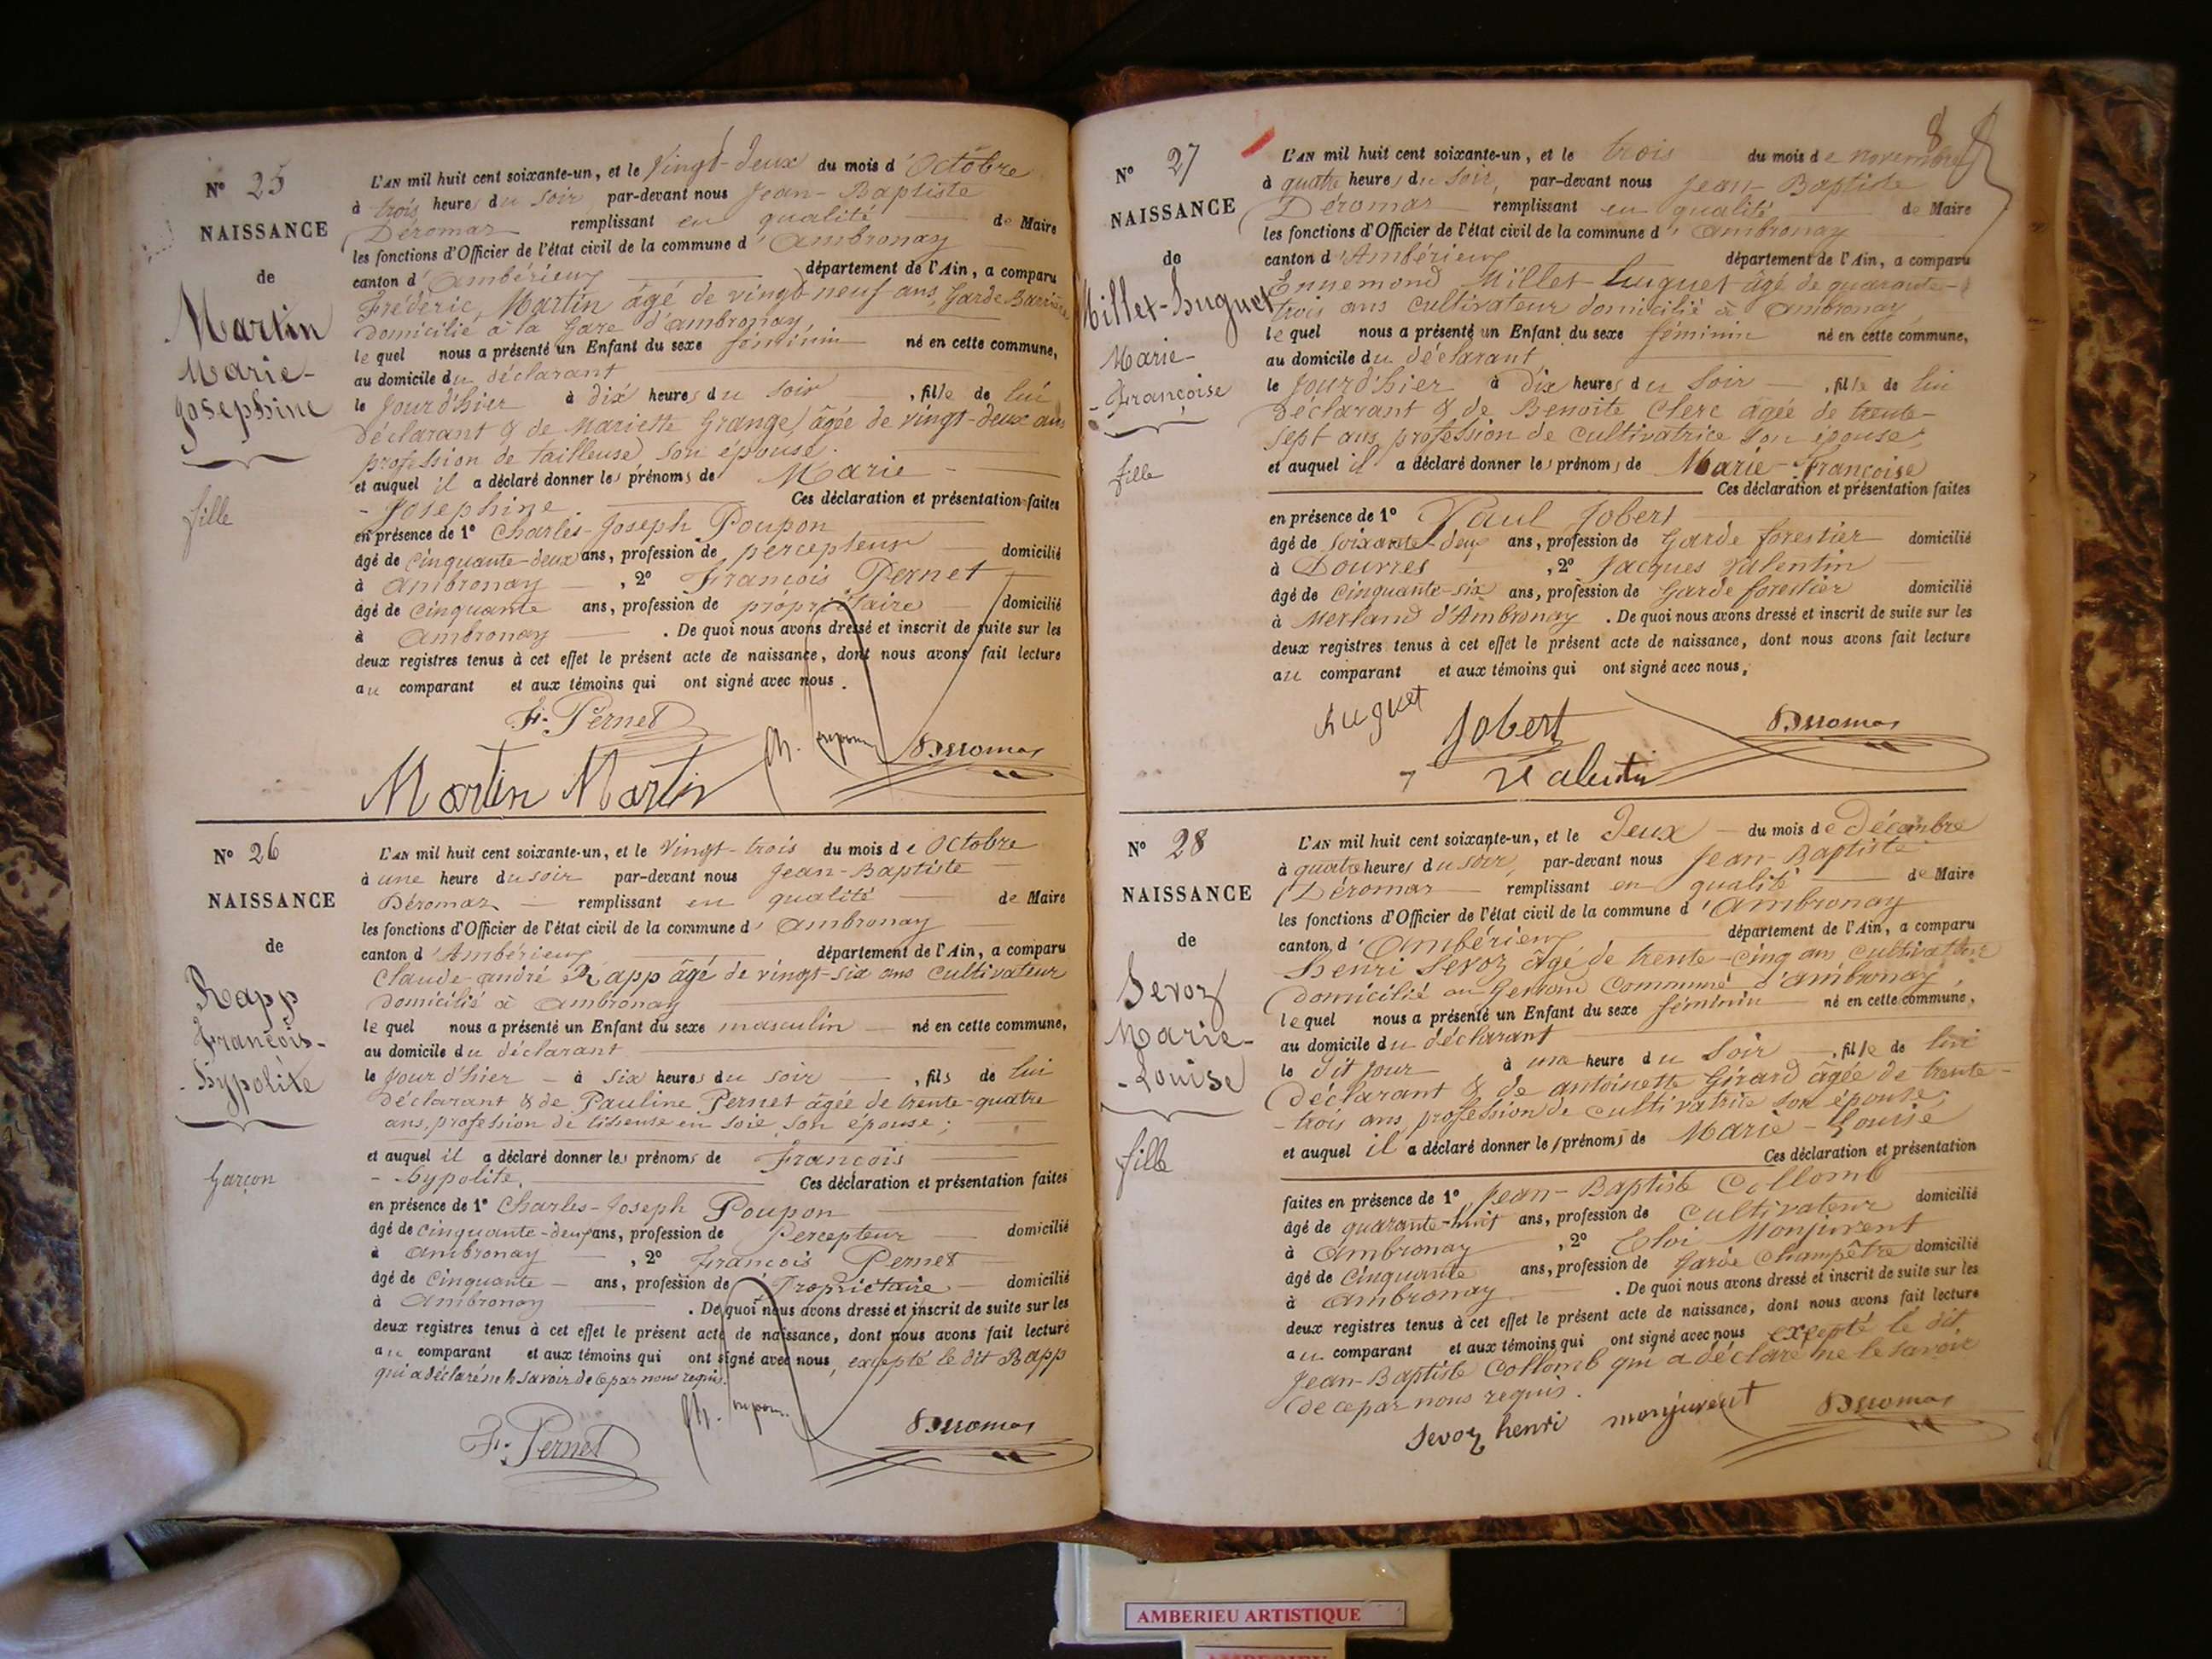 N° 25
NAISSANCE
de
Martin
Marie-
Josephine
fille
L'AN mil huit cent soixante-un, et le Vingt-deux du mois d'Octobre
à trois heures du soir par-devant nous Jean-Baptiste
Déromas remplissant en qualité de Maire
les fonctions d'Officier de l'état civil de la commune d'Ambronay
canton d'Ambérieux département de l'Ain, a comparu
Fréderic, Martin âgé de vingt neuf ans, Garde Barrière
domicilié à la Gare d'ambronay,
lequel nous a présenté un Enfant du sexe féminin né en cette commune,
au domicile du déclarant
le jour d'hier à dix heures du soir , fille de lui
déclarant & de Mariette Grange, âgée de vingt-deux ans
profession de tailleuse, son épouse.
et auquel il a déclaré donner les prénoms de Marie
- Josephine Ces déclaration et présentation faites
en présence de 1° Charles-Joseph Poupon
âgé de cinquante-deux ans, profession de percepteur domicilié
à Ambronay , 2° François Pernet
âgé de cinquante ans, profession de propriétaire domicilié
à Ambronay . De quoi nous avons dressé et inscrit de suite sur les
deux registres tenus à cet effet le présent acte de naissance, dont nous avons fait lecture
au comparant et aux témoins qui ont signé avec nous.
F. Pernet
Martin Martin Ch. Poupon Déromas
N° 26
NAISSANCE
de
Rapp
François-
-hypolite
Garçon
L'AN mil huit cent soixante-un, et le Vingt-trois du mois de Octobre
à une heure du soir par-devant nous Jean-Baptiste
Déromas remplissant en qualité de Maire
les fonctions d'Officier de l'état civil de la commune d'Ambronay
canton d'Ambérieux département de l'Ain, a comparu
Claude-andré Rapp âgé de vingt-six ans cultivateur
domicilié à Ambronay
lequel nous a présenté un Enfant du sexe masculin né en cette commune,
au domicile du déclarant
le jour d'hier à six heures du soir , fils de lui
déclarant & de Pauline Pernet âgée de trente-quatre
ans, profession de tisseuse en soie, son épouse;
et auquel il a déclaré donner les prénoms de François
- hypolite. Ces déclaration et présentation faites
en présence de 1° Charles-Joseph Poupon
âgé de cinquante-deux ans, profession de Percepteur domicilié
à Ambronay , 2° François Pernet
âgé de Cinquante ans, profession de Propriétaire domicilié
à Ambronay . De quoi nous avons dressé et inscrit de suite sur les
deux registres tenus à cet effet le présent acte de naissance, dont nous avons fait lecture
au comparant et aux témoins qui ont signé avec nous, excepté le dit Rapp
qui a déclaré ne le savoir de ce par nous requis.
F. Pernet Ch. Poupon Déromas
8
N° 27
NAISSANCE
de
Millet-huguet
Marie-
-Françoise
fille
L'AN mil huit cent soixante-un, et le trois du mois de novembre
à quatre heures du soir, par-devant nous Jean-Baptiste
Déromas remplissant en qualité de Maire
les fonctions d'Officier de l'état civil de la commune d'Ambronay
canton d'Ambérieux département de l'Ain, a comparu
Ennemond Millet-huguet âgé de quarante-
trois ans cultivateur domicilié à Ambronay,
lequel nous a présenté un Enfant du sexe féminin né en cette commune,
au domicile du déclarant
le jour d'hier à dix heures du soir , fille de lui
déclarant & de Benoite Clerc âgée de trente-
sept ans, profession de cultivatrice son épouse,
et auquel il a déclaré donner les prénoms de Marie-Françoise
Ces déclaration et présentation faites
en présence de 1° Paul Jobert
âgé de soixante-deux ans, profession de Garde forestier domicilié
à Douvres , 2° Jacques Valentin
âgé de cinquante-six ans, profession de Garde forestier domicilié
à Merland d'Ambronay . De quoi nous avons dressé et inscrit de suite sur les
deux registres tenus à cet effet le présent acte de naissance, dont nous avons fait lecture
au comparant et aux témoins qui ont signé avec nous.
huguet Jobert Déromas
Valentin
N° 28
NAISSANCE
de
Sevoz
Marie-
-Louise
fille
L'AN mil huit cent soixante-un, et le Deux du mois de Décembre
à quatre heures du soir, par-devant nous Jean-Baptiste
Déromas remplissant en qualité de Maire
les fonctions d'Officier de l'état civil de la commune d'Ambronay
canton d'Ambérieux département de l'Ain, a comparu
henri Sevoz âgé de trente-cinq ans cultivateur
domicilié au Commune d'ambronay,
lequel nous a présenté un Enfant du sexe féminin né en cette commune,
au domicile du déclarant
le dit jour à une heure du soir , fille de lui
déclarant & de antoinette Girard âgée de trente-
-trois ans, profession de cultivatrice son épouse;
et auquel il a déclaré donner les prénoms de Marie-Louise
Ces déclaration et présentation
faites en présence de 1° Jean-Baptiste Collomb
âgé de quarante-huit ans, profession de cultivateur domicilié
à Ambronay , 2° Eloi Monjuvent
âgé de Cinquante ans, profession de Garde Champêtre domicilié
à Ambronay . De quoi nous avons dressé et inscrit de suite sur les
deux registres tenus à cet effet le présent acte de naissance, dont nous avons fait lecture
au comparant et aux témoins qui ont signé avec nous excepté le dit
Jean-Baptiste Collomb qui a déclaré ne le savoir
de ce par nous requis.
Sevoz henri monjuvent Déromas
AMBERIEU ARTISTIQUE